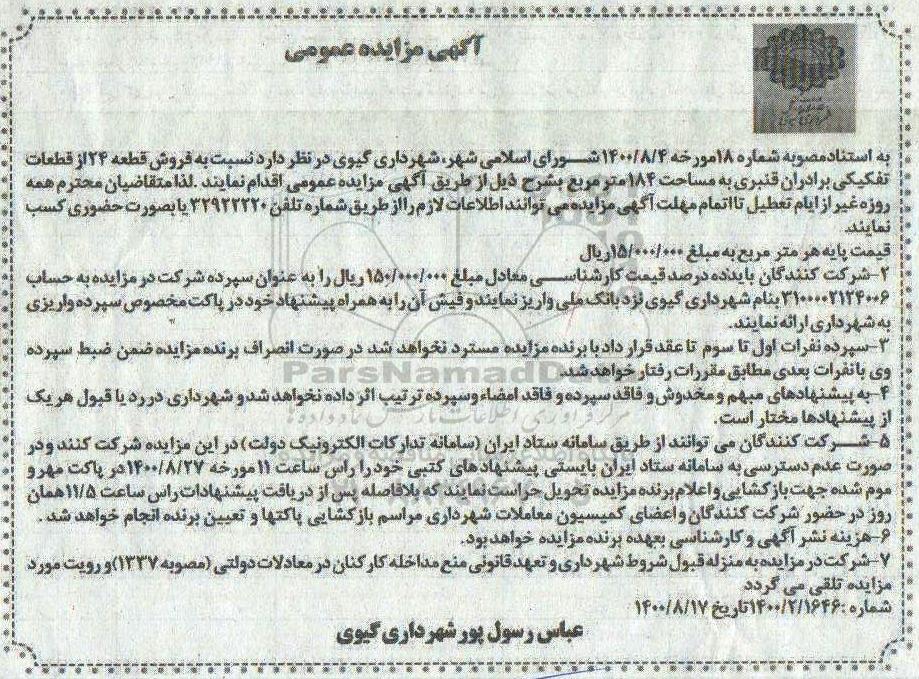 آگهی مزایده عمومی
به استنادمصوبه شماره ۱۸مورخه ۱۴۰۰/۸/۴شورای اسلامی شهر، شهرداری گیوی در نظر دارد نسبت به فروش قطعه ۲۴از قطعات
تفکیکی برادران قنبری به مساحت ۱۸۴ متر مربع بشرح ذیل از طریق آگهی مزایده عمومی اقدام نمایند .لذا متقاضیان محترم همه
روزه غیر از ایام تعطیل تا اتمام مهلت آگهی مزایده می توانند اطلاعات لازم را از طریق شماره تلفن ۳۲۹۲۲۲۲۰ یا بصورت حضوری کسب
نمایند.
قیمت پایه هر متر مربع به مبلغ ۱۵/۰۰۰/۰۰۰ریال
۲-شرکت کنندگان باید ده درصد قیمت کارشناسی معادل مبلغ ۱۵۰/۰۰۰/۰۰۰ ریال را به عنوان سپرده شرکت در مزایده به حساب
۳۱۰۰۰۰۲۱۲۴۰۰۶ بنام شهرداری گیوی نزد بانک ملی واریز نمایند و فیش آن را به همراه پیشنهاد خود در پاکت مخصوص سپرده واریزی
به شهرداری ارائه نمایند.
۳-سپرده نفرات اول تا سوم تا عقد قرار داد با برنده مزایده مسترد نخواهد شد در صورت انصراف برنده مزایده ضمن ضبط سپرده
وی با نفرات بعدی مطابق مقررات رفتار خواهد شد.
ParsNamadData
۴-به پیشنهادهای مبهم و مخدوش و فاقد سپرده و فاقد امضاء وسپرده ترتیب اثر داده نخواهد شد و شهرداری در رد یا قبول هر یک
از پیشنهادها مختار است.
۵-شرکت کنندگان می توانند از طریق سامانه ستاد ایران (سامانه تدارکات الکترونیک دولت) در این مزایده شرکت کنند و در
صورت عدم دسترسی به سامانه ستاد ایران بایستی پیشنهادهای کتبی خود را راس ساعت ۱۱ مورخه ۱۴۰۰/۸/۲۷در پاکت مهر و
موم شده جهت بازکشایی و اعلام برنده مزایده تحویل حراست نمایند که بلافاصله پس از دریافت پیشنهادات راس ساعت ۱۱/۵همان
روز در حضور شرکت کنندگان و اعضای کمیسیون معاملات شهرداری مراسم بازکشایی پاکتها و تعیین برنده انجام خواهد شد .
۶-هزینه نشر آگهی و کارشناسی بعهده برنده مزایده خواهد بود.
۷-شرکت در مزایده به منزله قبول شروط شهرداری و تعهد قانونی منع مداخله کارکنان در معادلات دولتی (مصوبه ۱۳۳۷)و رویت مورد
مزایده تلقی می گردد
شماره :۱۴۰۰/۲/۱۶۴۶تاریخ ۱۴۰۰/۸/۱۷
عباس رسول پور شهرداری گیوی